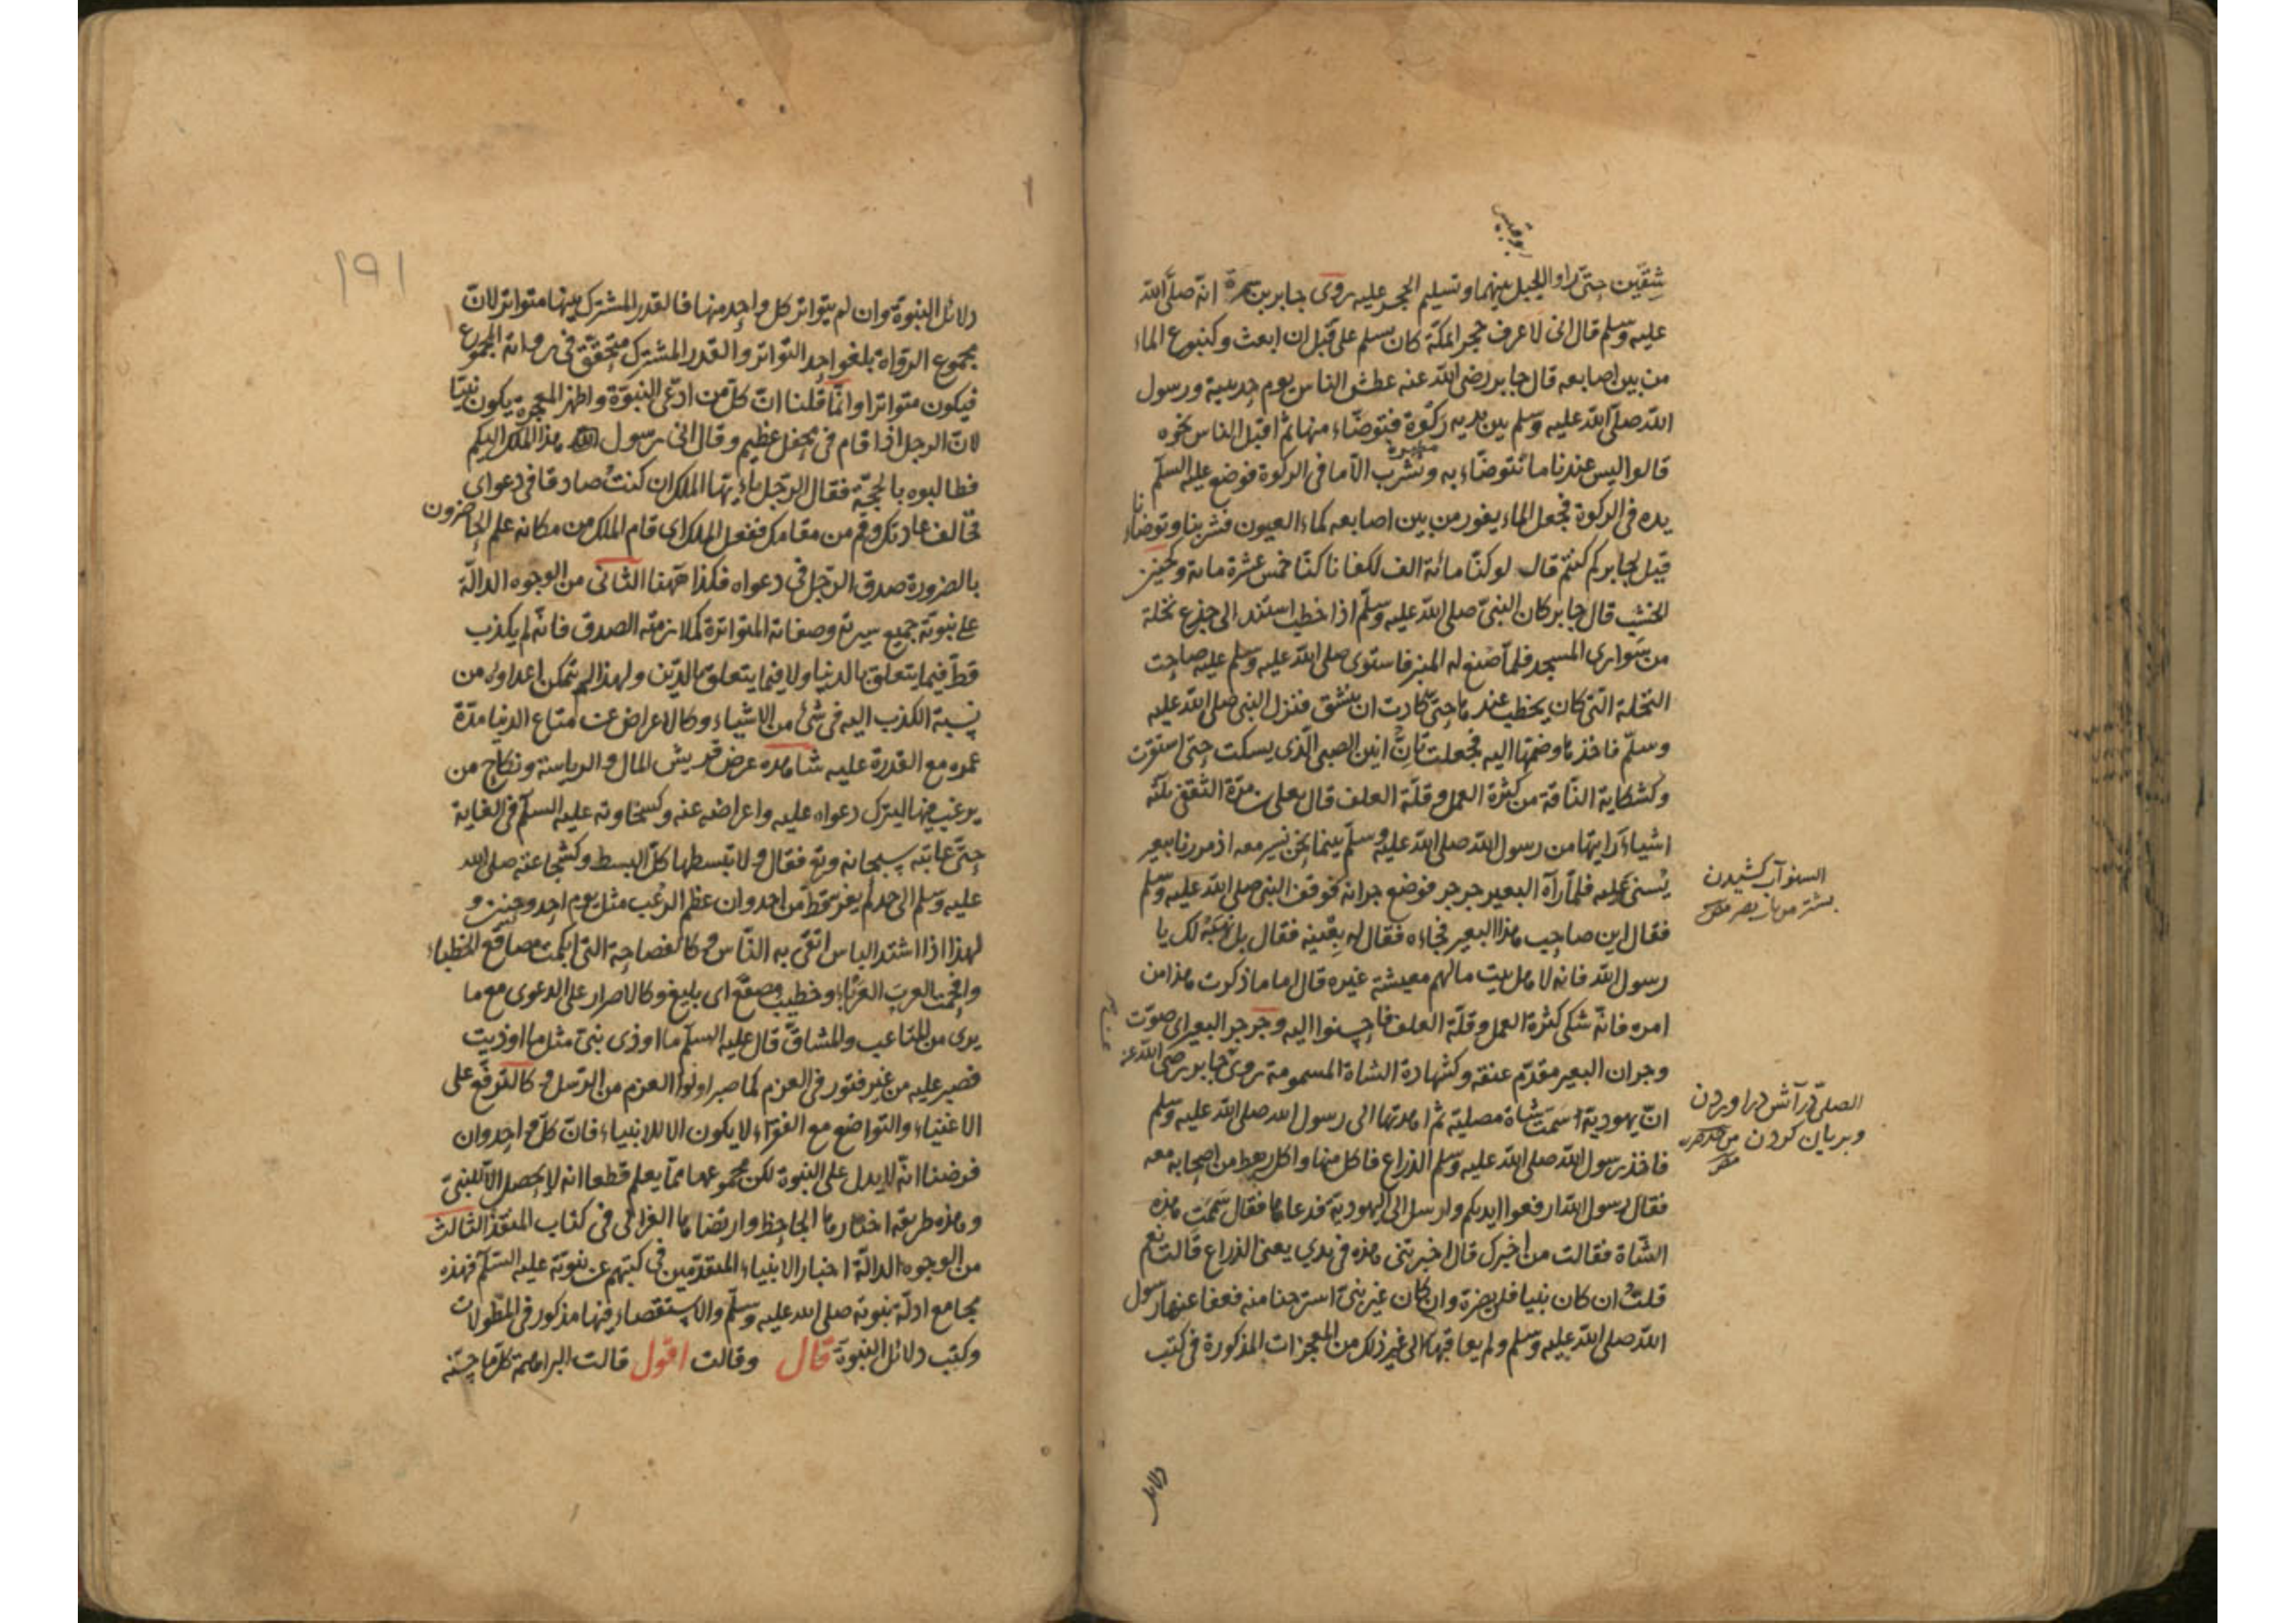 بو قبيس
شقين حتى راوا الجبل بينهما وتسليم الحجر عليه روى جابر بن سمرة انه صلى الله
عليه وسلم قال انى لاعرف حجرا بمكة كان يسلم على قبل ان ابعث وكنبوع الماء
من بين اصابعه قال جابر رضى الله عنه عطش الناس يوم حديبية ورسول
الله صلى الله عليه وسلم بين يديه ركوة فتوضاء منها ثم اقبل الناس نحوه
قالوا ليس عندنا ما نتوضاء به ونشرب الا ما فى الركوة فوضع عليه السلم
يده فى الركوة فجعل الماء يفور من بين اصابعه كماء العيون فشربنا وتوضانا
قيل لجابر كم كنتم قال لو كنا مائة الف لكفانا كنا خمس عشرة مائة وكحنين
الخشب قال جابر كان النبى صلى الله عليه وسلم اذا خطب استند الى جذع نخلة
من سوارى المسجد فلما صنع له المنبر فاستوى صلى الله عليه وسلم عليه صاحت
النخلة التى كان يخطب عندها حتى كادت ان تنشق فنزل النبى صلى الله عليه
وسلم فاخذها وضمها اليه فجعلت تان انين الصبى الذى يسكت حتى استقرت
وكشكاية الناقة من كثرة العمل وقلة العلف قال يعلى بن مرة الثقفى ثلثة
اشياء رايتها من رسول الله صلى الله عليه وسلم بينما نحن نسير معه اذ مررنا ببعير
يسنى عليه فلما راه البعير جرجر فوضع جرانه فوقف النبى صلى الله عليه وسلم
فقال اين صاحب هذا البعير فجاءه فقال له بعنيه فقال بل نهبه لك يا
رسول الله فانه لاهل بيت مالهم معيشة غيره قال اما ما ذكرت هذا من
امره فانه شكى كثرة العمل وقلة العلف فاحسنوا اليه وجرجر البعير اى صوت
وجران البعير مقدم عنقه وكشهادة الشاة المسمومة روى جابر رضى الله عنه
ان يهودية اسمت شاة مصلية ثم اهدتها الى رسول الله صلى الله عليه وسلم
فاخذ رسول الله صلى الله عليه وسلم الذراع فاكل منها واكل رهط من اصحابه معه
فقال رسول الله ارفعوا ايديكم وارسل الى اليهودية فدعاها فقال سممت هذه
الشاة فقالت من اخبرك قال اخبرتنى هذه فى يدي يعنى الذراع قالت نعم
قلت ان كان نبيا فلن يضره وان كان غير نبى استرحنا منه فعفا عنها رسول
الله صلى الله عليه وسلم ولم يعاقبها الى غير ذلك من المعجزات المذكورة فى كتب
السنو آب كشيدن
الصلى در آتش در اوردن
وبريان كردن
دلائل
١٩١
دلائل النبوة وان لم يتواتر كل واحد منها فالقدر المشترك بينها متواتر لان
مجموع الرواة بلغوا حد التواتر والقدر المشترك متحقق فى رواية المجموع
فيكون متواترا وانما قلنا ان كل من ادعى النبوة واظهر المعجزة يكون نبيا
لان الرجل اذا قام فى محفل عظيم وقال انى رسول هذا الملك اليكم
فطالبوه بالحجة فقال الرجل يا ايها الملك ان كنت صادقا فى دعواى
فخالف عادتك وقم من مقامك ففعل الملك اى قام الملك من مكانه علم الحاضرون
بالضرورة صدق الرجل فى دعواه فكذا ههنا الثانى من الوجوه الدالة
على نبوته جميع سيرته وصفاته المتواترة كملازمته الصدق فانه لم يكذب
قط فيما يتعلق بالدنيا ولا فيما يتعلق بالدين ولهذا لم يتمكن اعداوه من
نسبة الكذب اليه فى شئ من الاشياء وكالاعراض عن متاع الدنيا مدة
عمره مع القدرة عليه شاهده عرض قريش المال والرياسة ونكاح من
يرغب فيها ليترك دعواه عليه واعراضه عنه وكسخاوته عليه السلم فى الغاية
حتى عاتبه سبحانه وتع فقال ولا تبسطها كل البسط وكشجاعته صلى الله
عليه وسلم الى حد لم يفر قط من احد وان عظم الرعب مثل يوم احد وحنين و
لهذا اذا اشتد الباس اتقى به الناس وكالفصاحة التى ابكمت مصاقع الخطباء
وافحمت العرب العرباء وخطيب مصقع اى بليغ وكالاصرار على الدعوى مع ما
يرى من المتاعب والمشاق قال عليه السلم ما اوذى نبى مثل ما اوذيت
فصبر عليه من غير فتور فى العزم كما صبر اولوا العزم من الرسل وكالترفع على
الاغنياء والتواضع مع الفقراء لا يكون الا للانبياء فان كل واحد وان
فرضنا انه لا يدل على النبوة لكن مجموعها مما يعلم قطعا انه لا يحصل الا للنبى
وهذه طريقة اختارها الجاحظ وارتضاها الغزالى فى كتاب المنقذ الثالث
من الوجوه الدالة اخبار الانبياء المتقدمين فى كتبهم عن نبوته عليه السلم فهذه
مجامع ادلة نبوته صلى الله عليه وسلم والاستقصاء فيها مذكور فى المطولات
وكتب دلائل النبوة قال وقالت اقول قالت البراهمة كل ما حسنه